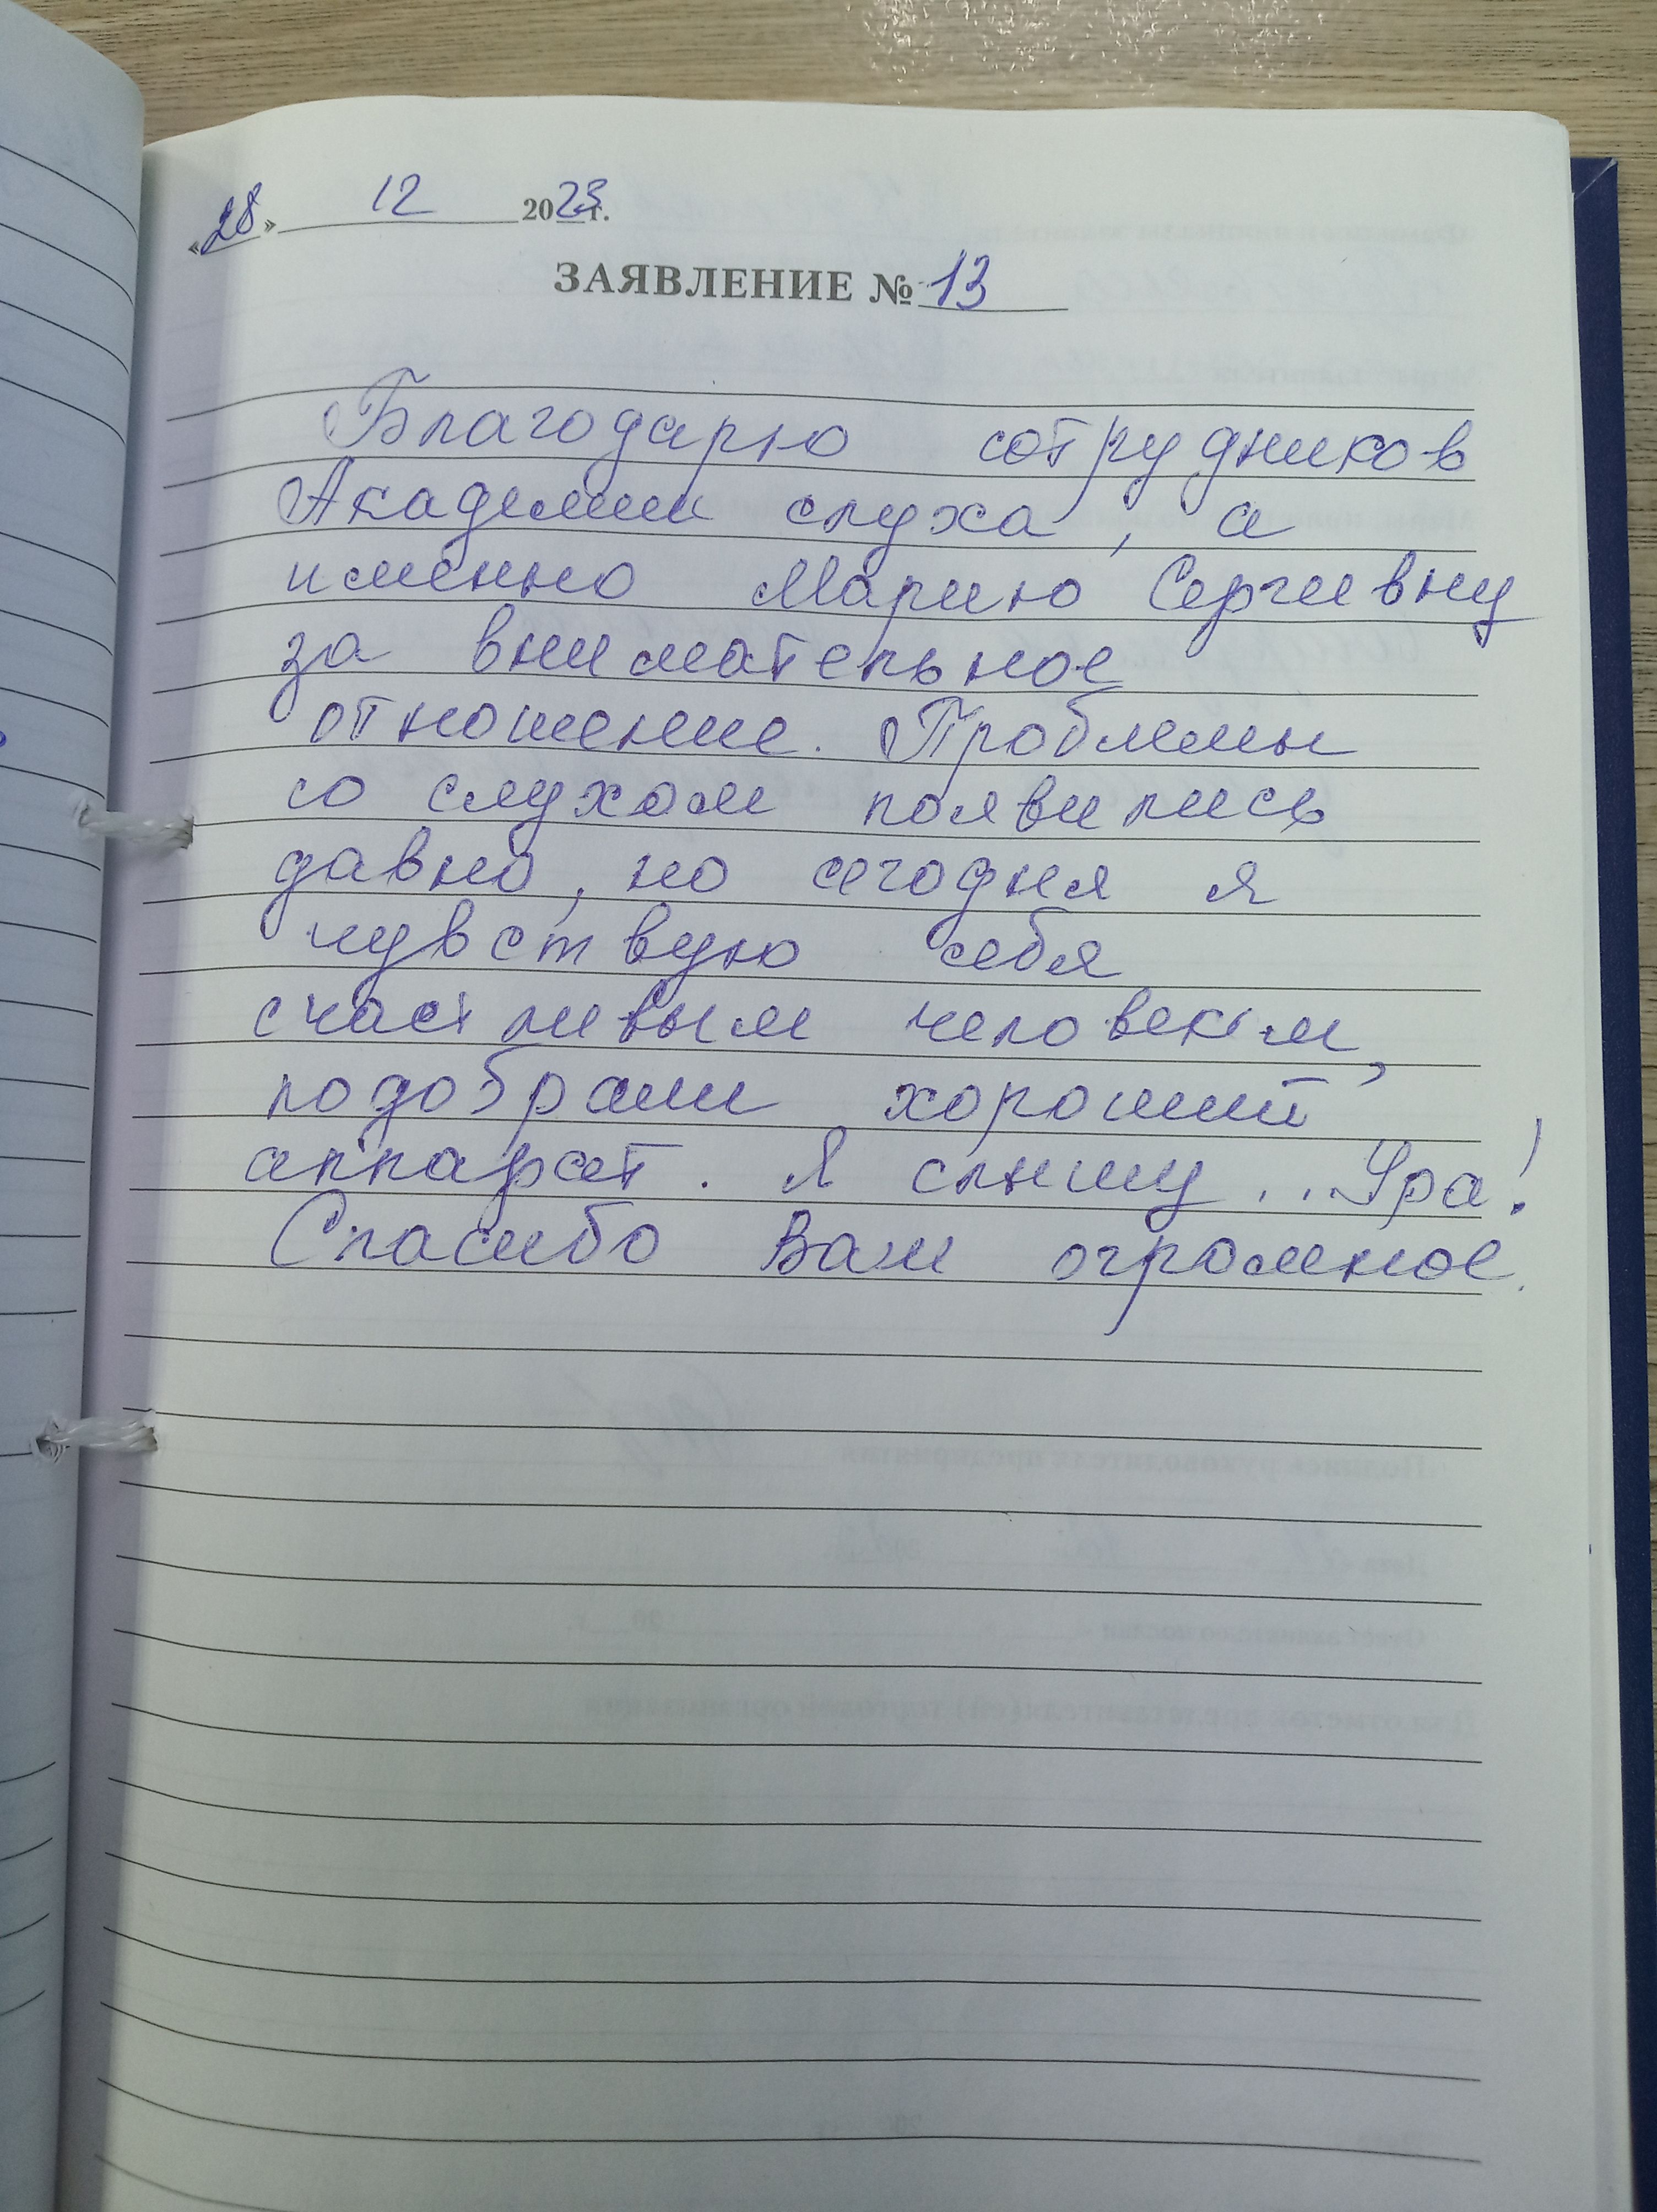 «28» 12 2023 г.
ЗАЯВЛЕНИЕ № 13
Благодарю сотрудников
Академии слуха, а
именно Марию Сергеевну
за внимательное
отношение. Проблемы
со слухом появились
давно, но сегодня я
чувствую себя
счастливым человеком,
подобрали хороший
аппарат. Я слышу... Ура!
Спасибо Вам огромное.